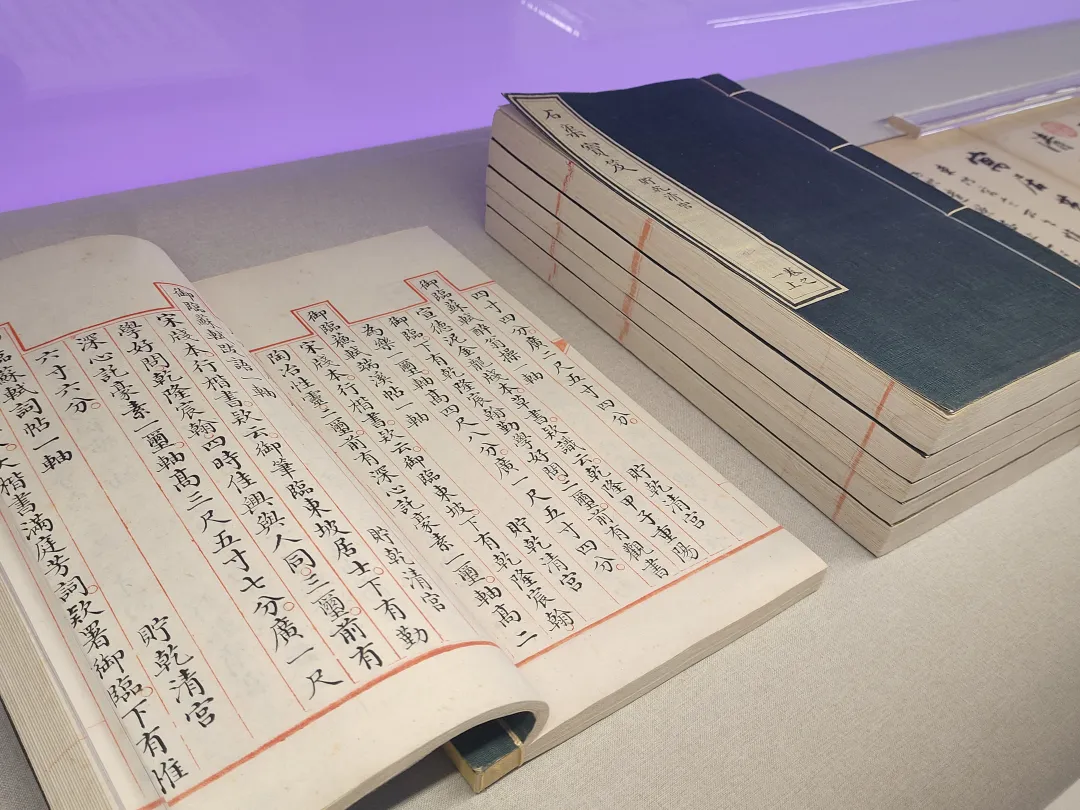 四寸四分。廣二尺五寸四分。 貯乾清宮
御臨蘇軾醉翁操一軸
宣德泥金雲龍牋本草書欵識云乾隆甲子重陽
御臨下有乾隆宸翰勤學好問二璽前有觀書
為樂一璽軸高四尺八分。廣一尺五寸四分。 貯乾清宮
御臨蘇軾端溪帖一軸
宋牋本行楷書欵云御臨東坡。下有乾隆宸翰
陶冶性靈二璽。前有深心託豪素一璽。軸高二
御臨蘇軾語一軸 貯乾清宮
宋牋本行楷書欵云御筆臨東坡居士。下有勤
學好問。乾隆宸翰。四時佳興與人同。三璽。前有
深心託豪素一璽。軸高三尺五寸七分。廣一尺
六寸六分。 貯乾清宮
臨蘇軾詞帖一軸
大楷書滿庭芳詞。欵署御臨。下有惟
石渠寶笈 貯乾清宮
卷之一上